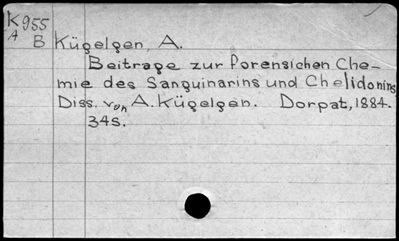 K955
A B Kügelgen, A.
Beitrage zur forensichen Che-
mie des Sanguinarins und Chelidonins
Diss. von A. Kügelgen. Dorpat, 1884.
34s.